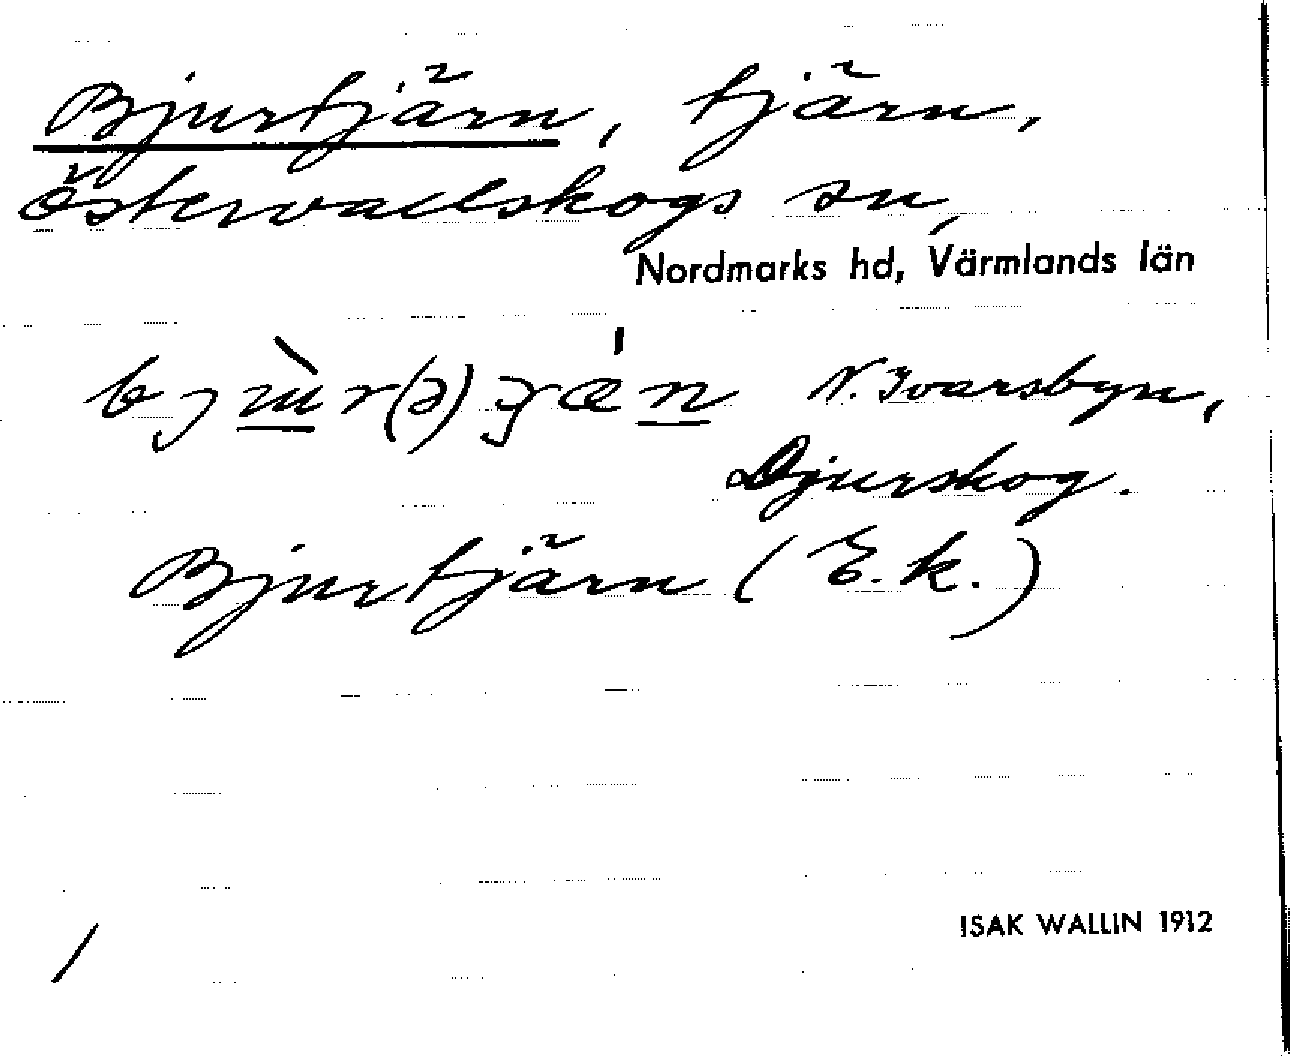 Bjurtjärn, tjärn,
Östervallskogs sn,
Nordmarks hd, Värmlands län
N. Ivarsbyn,
Djurskog.
Bjurtjärn (E.k.)
ISAK WALLIN 1912
/